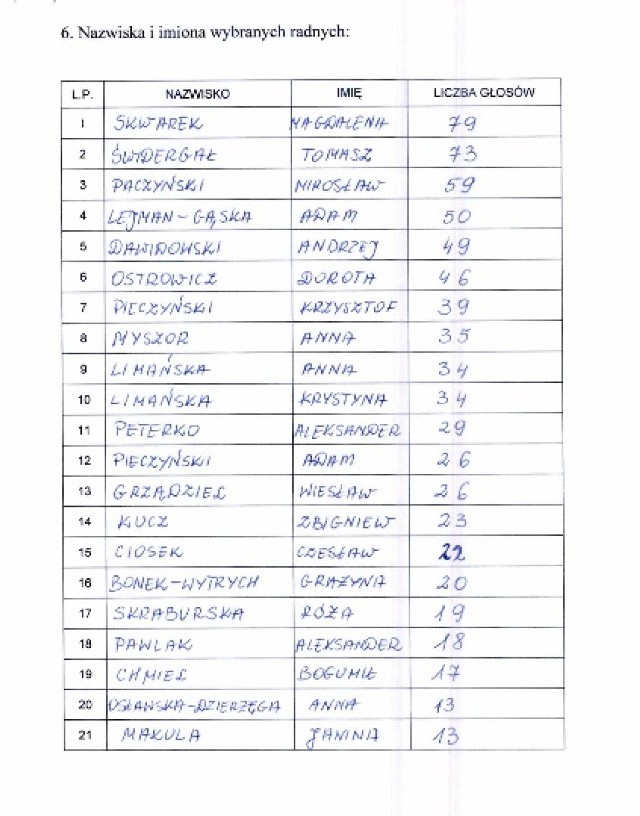 6. Nazwiska i imiona wybranych radnych:
L.P. NAZWISKO IMIĘ LICZBA GŁOSÓW
1 SKWAREK MAGDALENA 79
2 ŚWIDERGAŁ TOMASZ 73
3 PACZYŃSKI MIROSŁAW 59
4 LEJMAN-GĄSKA ADAM 50
5 DAWIDOWSKI ANDRZEJ 49
6 OSTROWICZ DOROTA 46
7 PIECZYŃSKI KRZYSZTOF 39
8 MYSZOR ANNA 35
9 LIMAŃSKA ANNA 34
10 LIMAŃSKA KRYSTYNA 34
11 PETERKO ALEKSANDER 29
12 PIECZYŃSKI ADAM 26
13 GRZĄDZIEL WIESŁAW 26
14 KUCZ ZBIGNIEW 23
15 CIOSEK CZESŁAW 22
16 BONEK-WYTRYCH GRAŻYNA 20
17 SKRABURSKA RÓŻA 19
18 PAWLAK ALEKSANDER 18
19 CHMIEL BOGUMIŁ 17
20 OSŁAWSKA-DZIERZĘGA ANNA 13
21 MAKULA JANINA 13